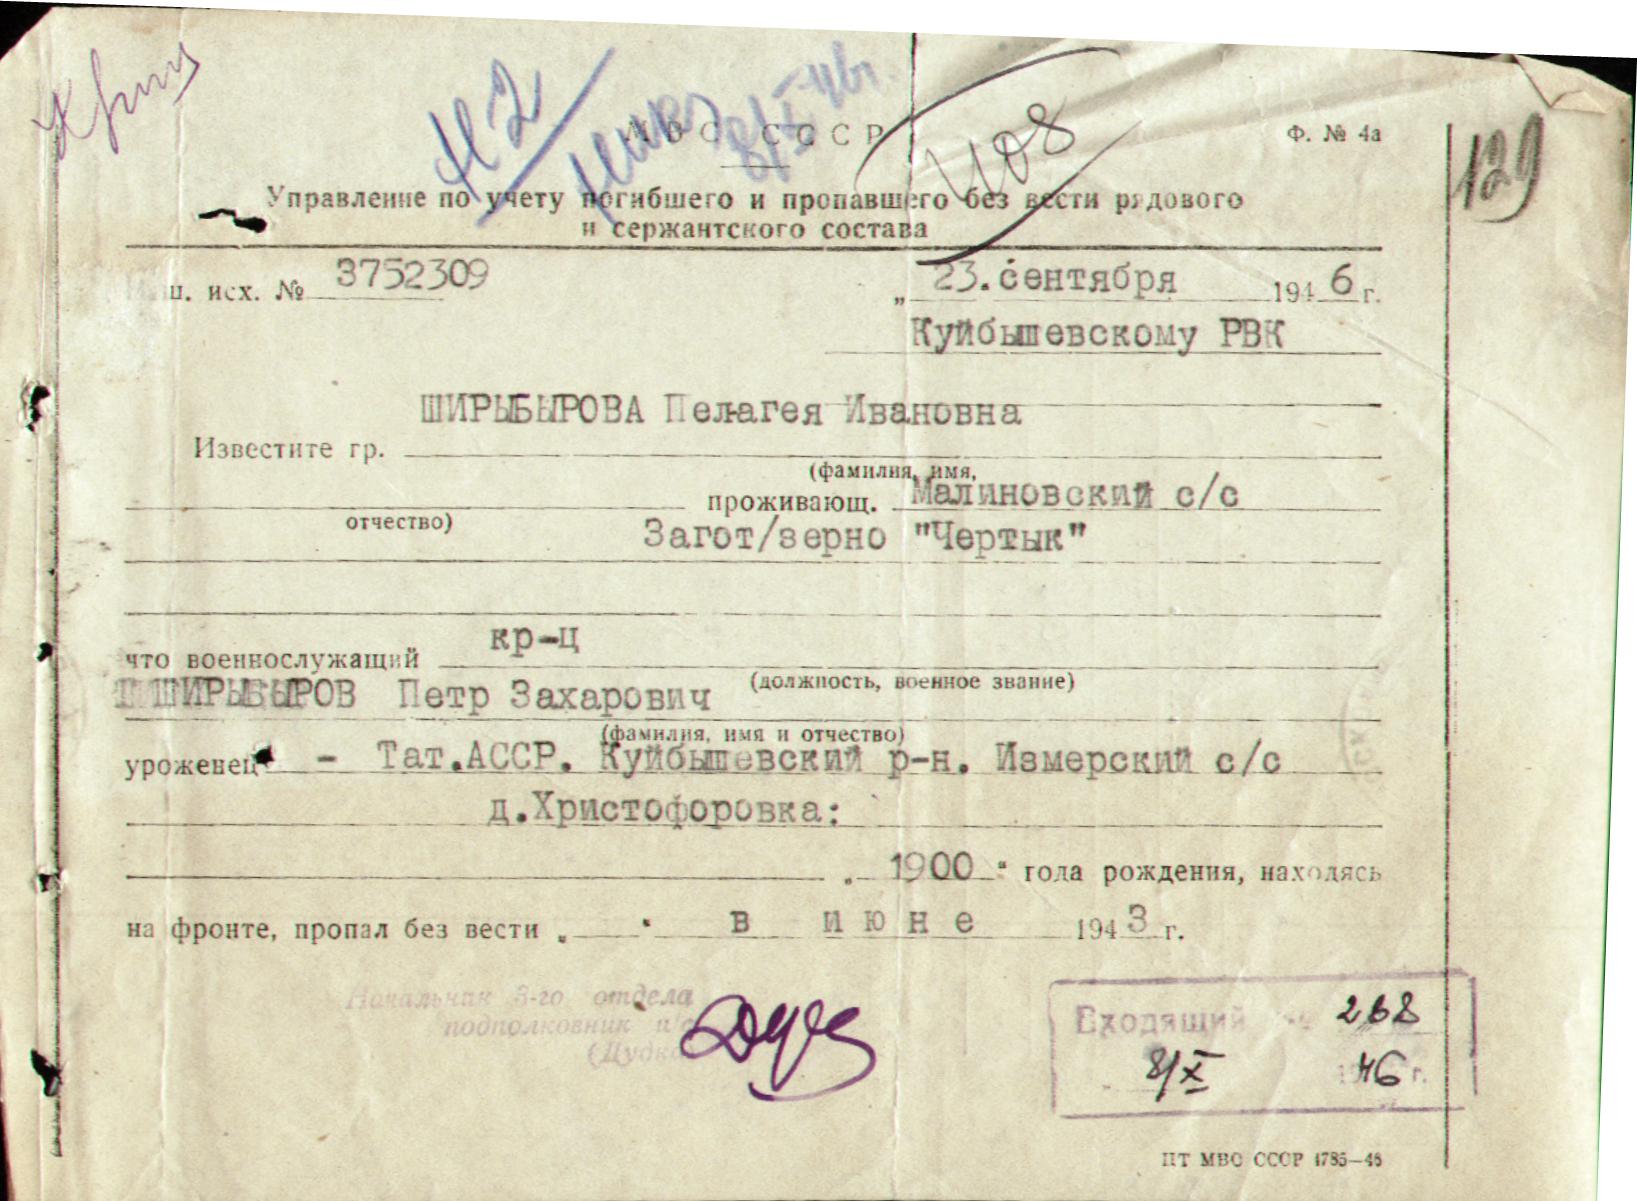 129
1108
М В С СССР
Ф. № 4а
Управление по учету погибшего и пропавшего без вести рядового
и сержантского состава
исх. № 3752309
„ 23.сентября 1946 г.
Куйбышевскому РВК
ШИРЫБЫРОВА Пелагея Ивановна
Известите гр.
(фамилия, имя,
проживающ. Малиновский с/с
отчество)
Загот/зерно "Чертык"
что военнослужащий кр-ц
(должность, военное звание)
ШИРЫБЫРОВ Петр Захарович
(фамилия, имя и отчество)
уроженец - Тат.АССР. Куйбышевский р-н. Измерский с/с
д.Христофоровка:
„ 1900 " года рождения, находясь
на фронте, пропал без вести „ в июне 1943 г.
Начальник 3-го отдела
подполковник
(Дудко
Входящий № 268
8/X 1946 г.
ПТ МВС СССР 4785—46